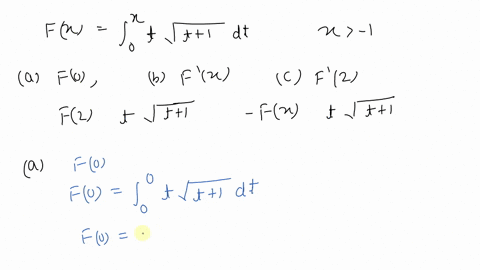 F(x) = ∫₀ˣ t √(t+1) dt   x > -1
(a) F(0),   (b) F'(x)   (c) F'(2)
F(2)   t √(t+1)   -F(x)   t √(t+1)
(a) F(0)
F(0) = ∫₀⁰ t √(t+1) dt
F(0) =